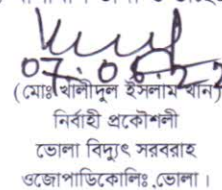 07.06.22
(মোঃ খালীদুল ইসলাম খান)
নির্বাহী প্রকৌশলী
ভোলা বিদ্যুৎ সরবরাহ
ওজোপাডিকোলিঃ,ভোলা।